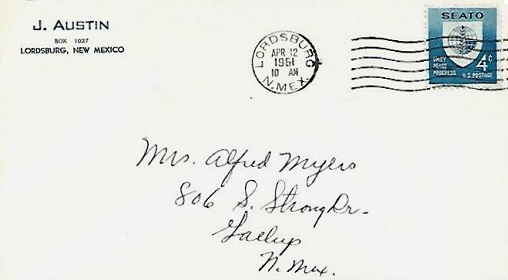 J. AUSTIN
BOX 1027
LORDSBURG, NEW MEXICO
LORDSBURG
APR 12
1961
10 AM
N.MEX.
SEATO
UNITY
PEACE
PROGRESS
4¢
U.S. POSTAGE
Mrs. Alfred Myers
806 S. Strong Dr.
Gallup
N. Mex.